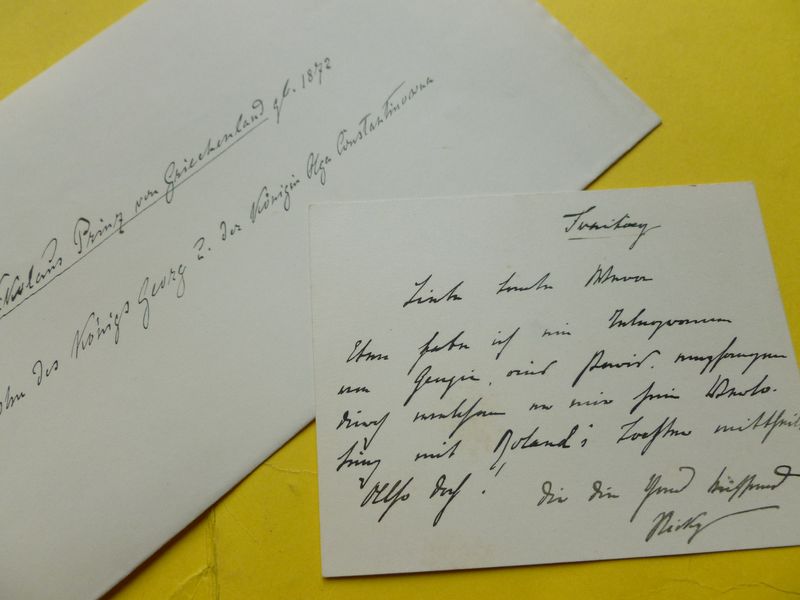 Nikolaus Prinz von Griechenland gb. 1872
Sohn des Königs Georg I. der Königin Olga Constantinowna
Freitag
Liebe Tante
Eben habe ich ein Telegramm
von Georgie, aus Paris, empfangen
durch welchem er mir seine Verlo-
bung mit Roland's Tochter mittheilt
Also doch! Dir die Hand küssend
Nicky